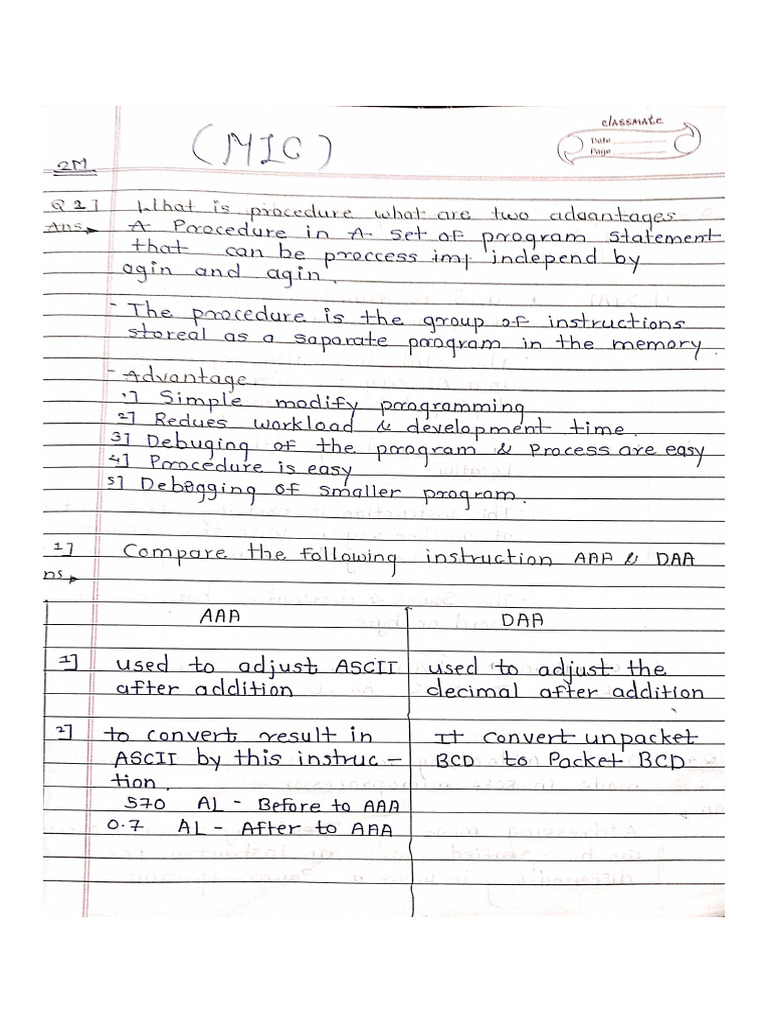 classmate
Date
Page
(MIC)
2M
Q 2] What is procedure what are two advantages
Ans→ A Procedure in A set of program statement
that can be proccess imp independ by
agin and agin.
- The procedure is the group of instructions
storeal as a saparate program in the memory.
- Advantage
1] Simple modify programming
2] Redues workload & development time.
3] Debuging of the program & Process are easy
4] Procedure is easy
5] Debegging of smaller program.
1] Compare the following instruction AAA & DAA
ns→
AAA DAA
1] used to adjust ASCII used to adjust the
after addition decimal after addition
2] to convert result in It convert unpacket
ASCII by this instruc- BCD to Packet BCD
tion.
570 AL - Before to AAA
0.7 AL - After to AAA